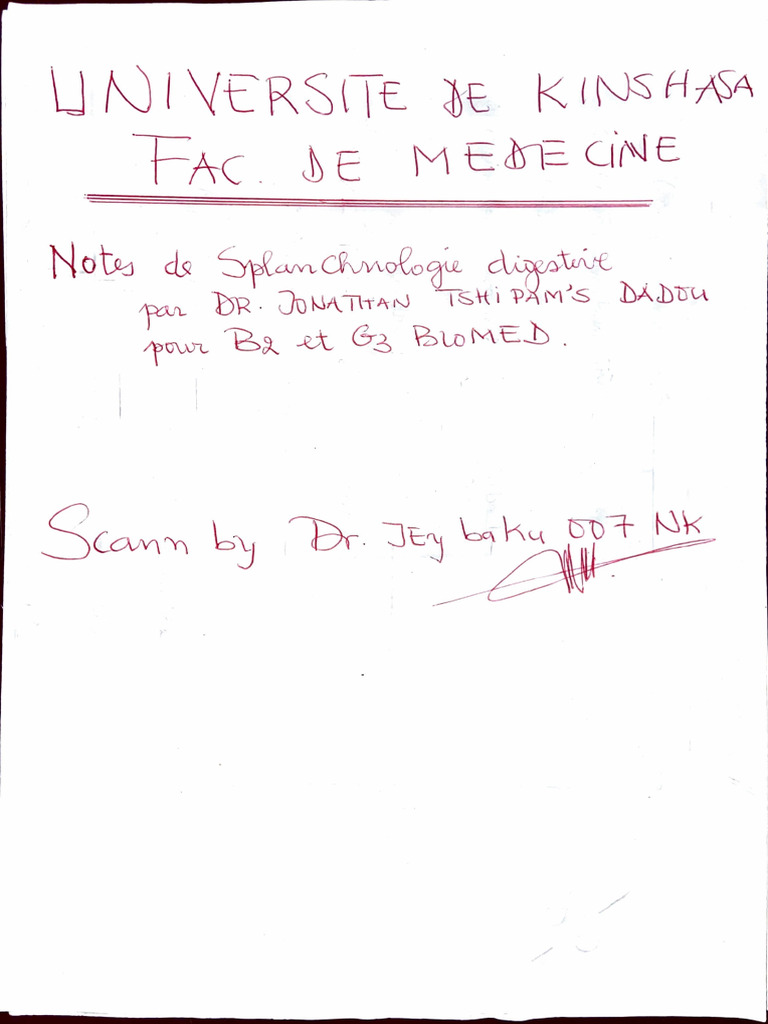 UNIVERSITE DE KINSHASA
FAC. DE MEDECINE
Notes de Splanchnologie digestive
par DR. JONATHAN TSHIPAM'S DADOU
pour B2 et G3 BIOMED.
Scann by Dr. JEy baku 007 NK